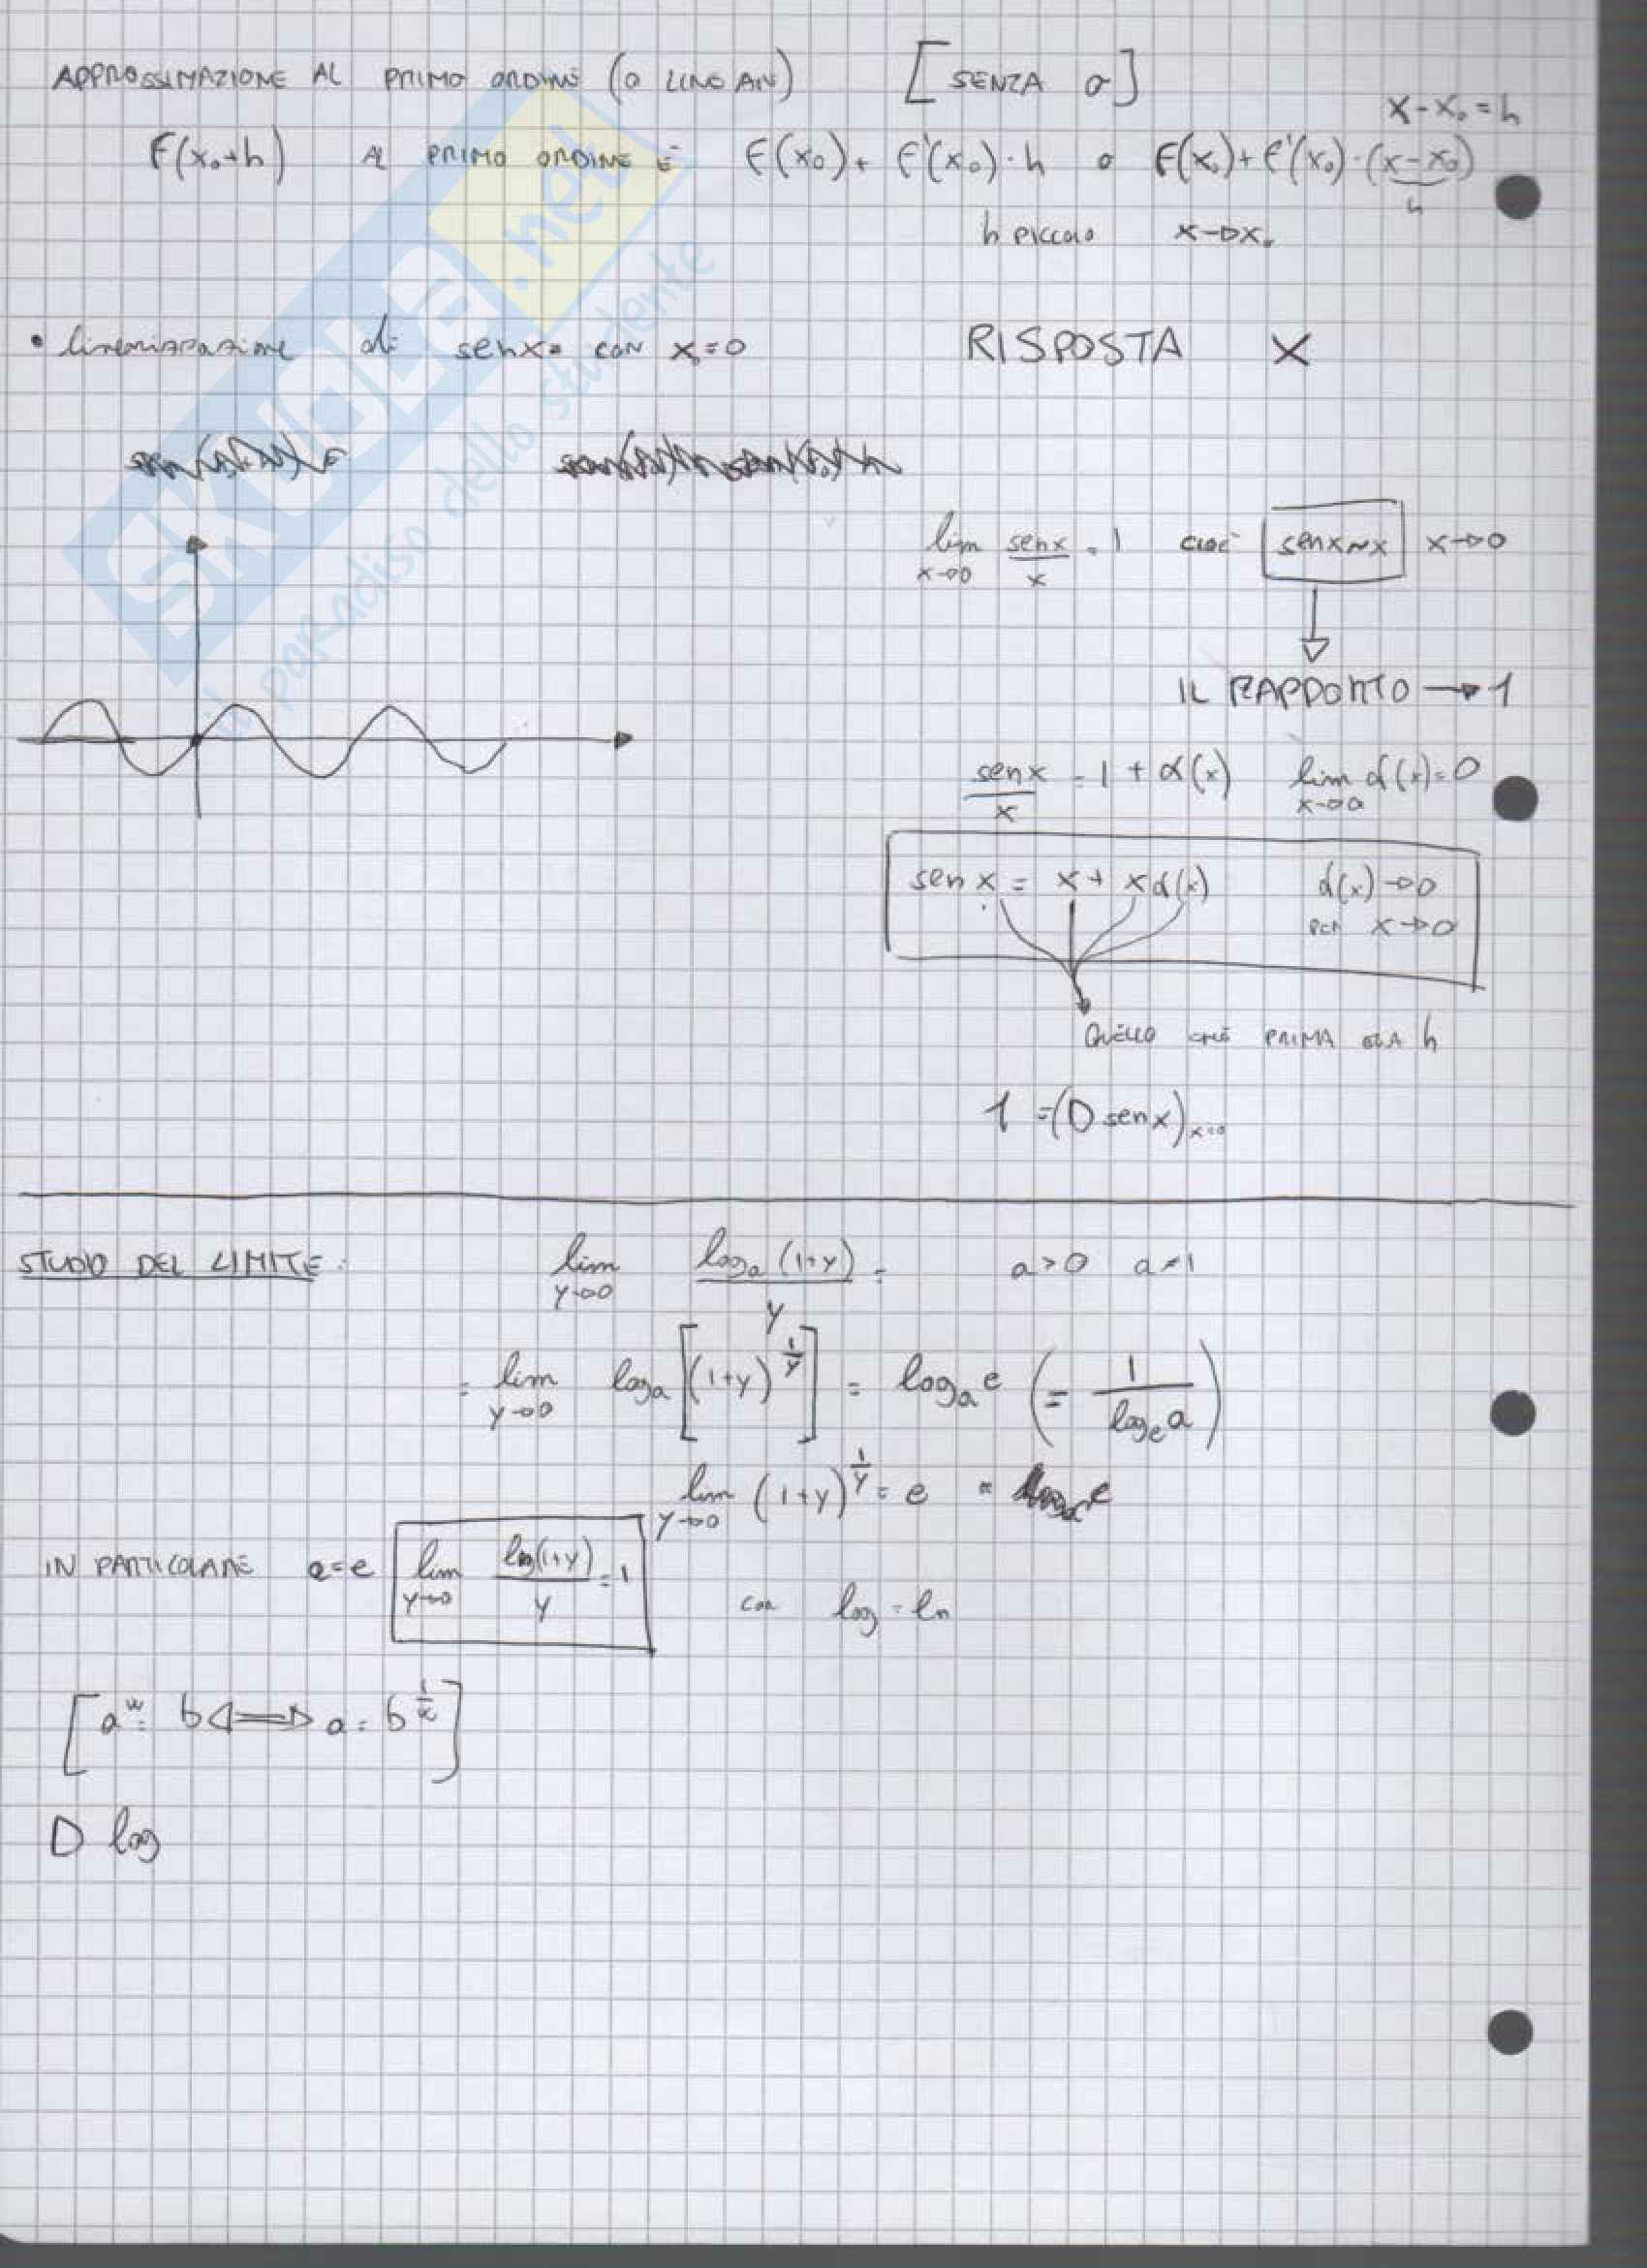 APPROSSIMAZIONE AL PRIMO ORDINE (O LINEAR) [SENZA σ]
x-x₀=h
F(x₀+h) AL PRIMO ORDINE È F(x₀)+F'(x₀)·h o F(x₀)+F'(x₀)·(x-x₀)
h
h PICCOLO x→x₀
• linearizzazione di senx con x=0 RISPOSTA X
lim x→0 senx/x = 1 CIOÈ senx~x x→0
IL RAPPORTO → 1
senx/x = 1 + α(x) lim x→0 α(x)=0
sen x = x + xα(x) α(x)→0
PER x→0
QUELLO CHE PRIMA ERA h
1 =(D senx)x=0
STUDIO DEL LIMITE: lim y→0 logₐ(1+y)/y = a>0 a≠1
= lim y→0 logₐ[(1+y)^1/y] = logₐe (= 1/logₑa)
lim y→0 (1+y)^1/y = e
IN PARTICOLARE a=e lim y→0 log(1+y)/y = 1 con log=ln
[a^w = b ⇔ a = b^1/w]
D log
SKUOLA.net
il paradiso dello studente